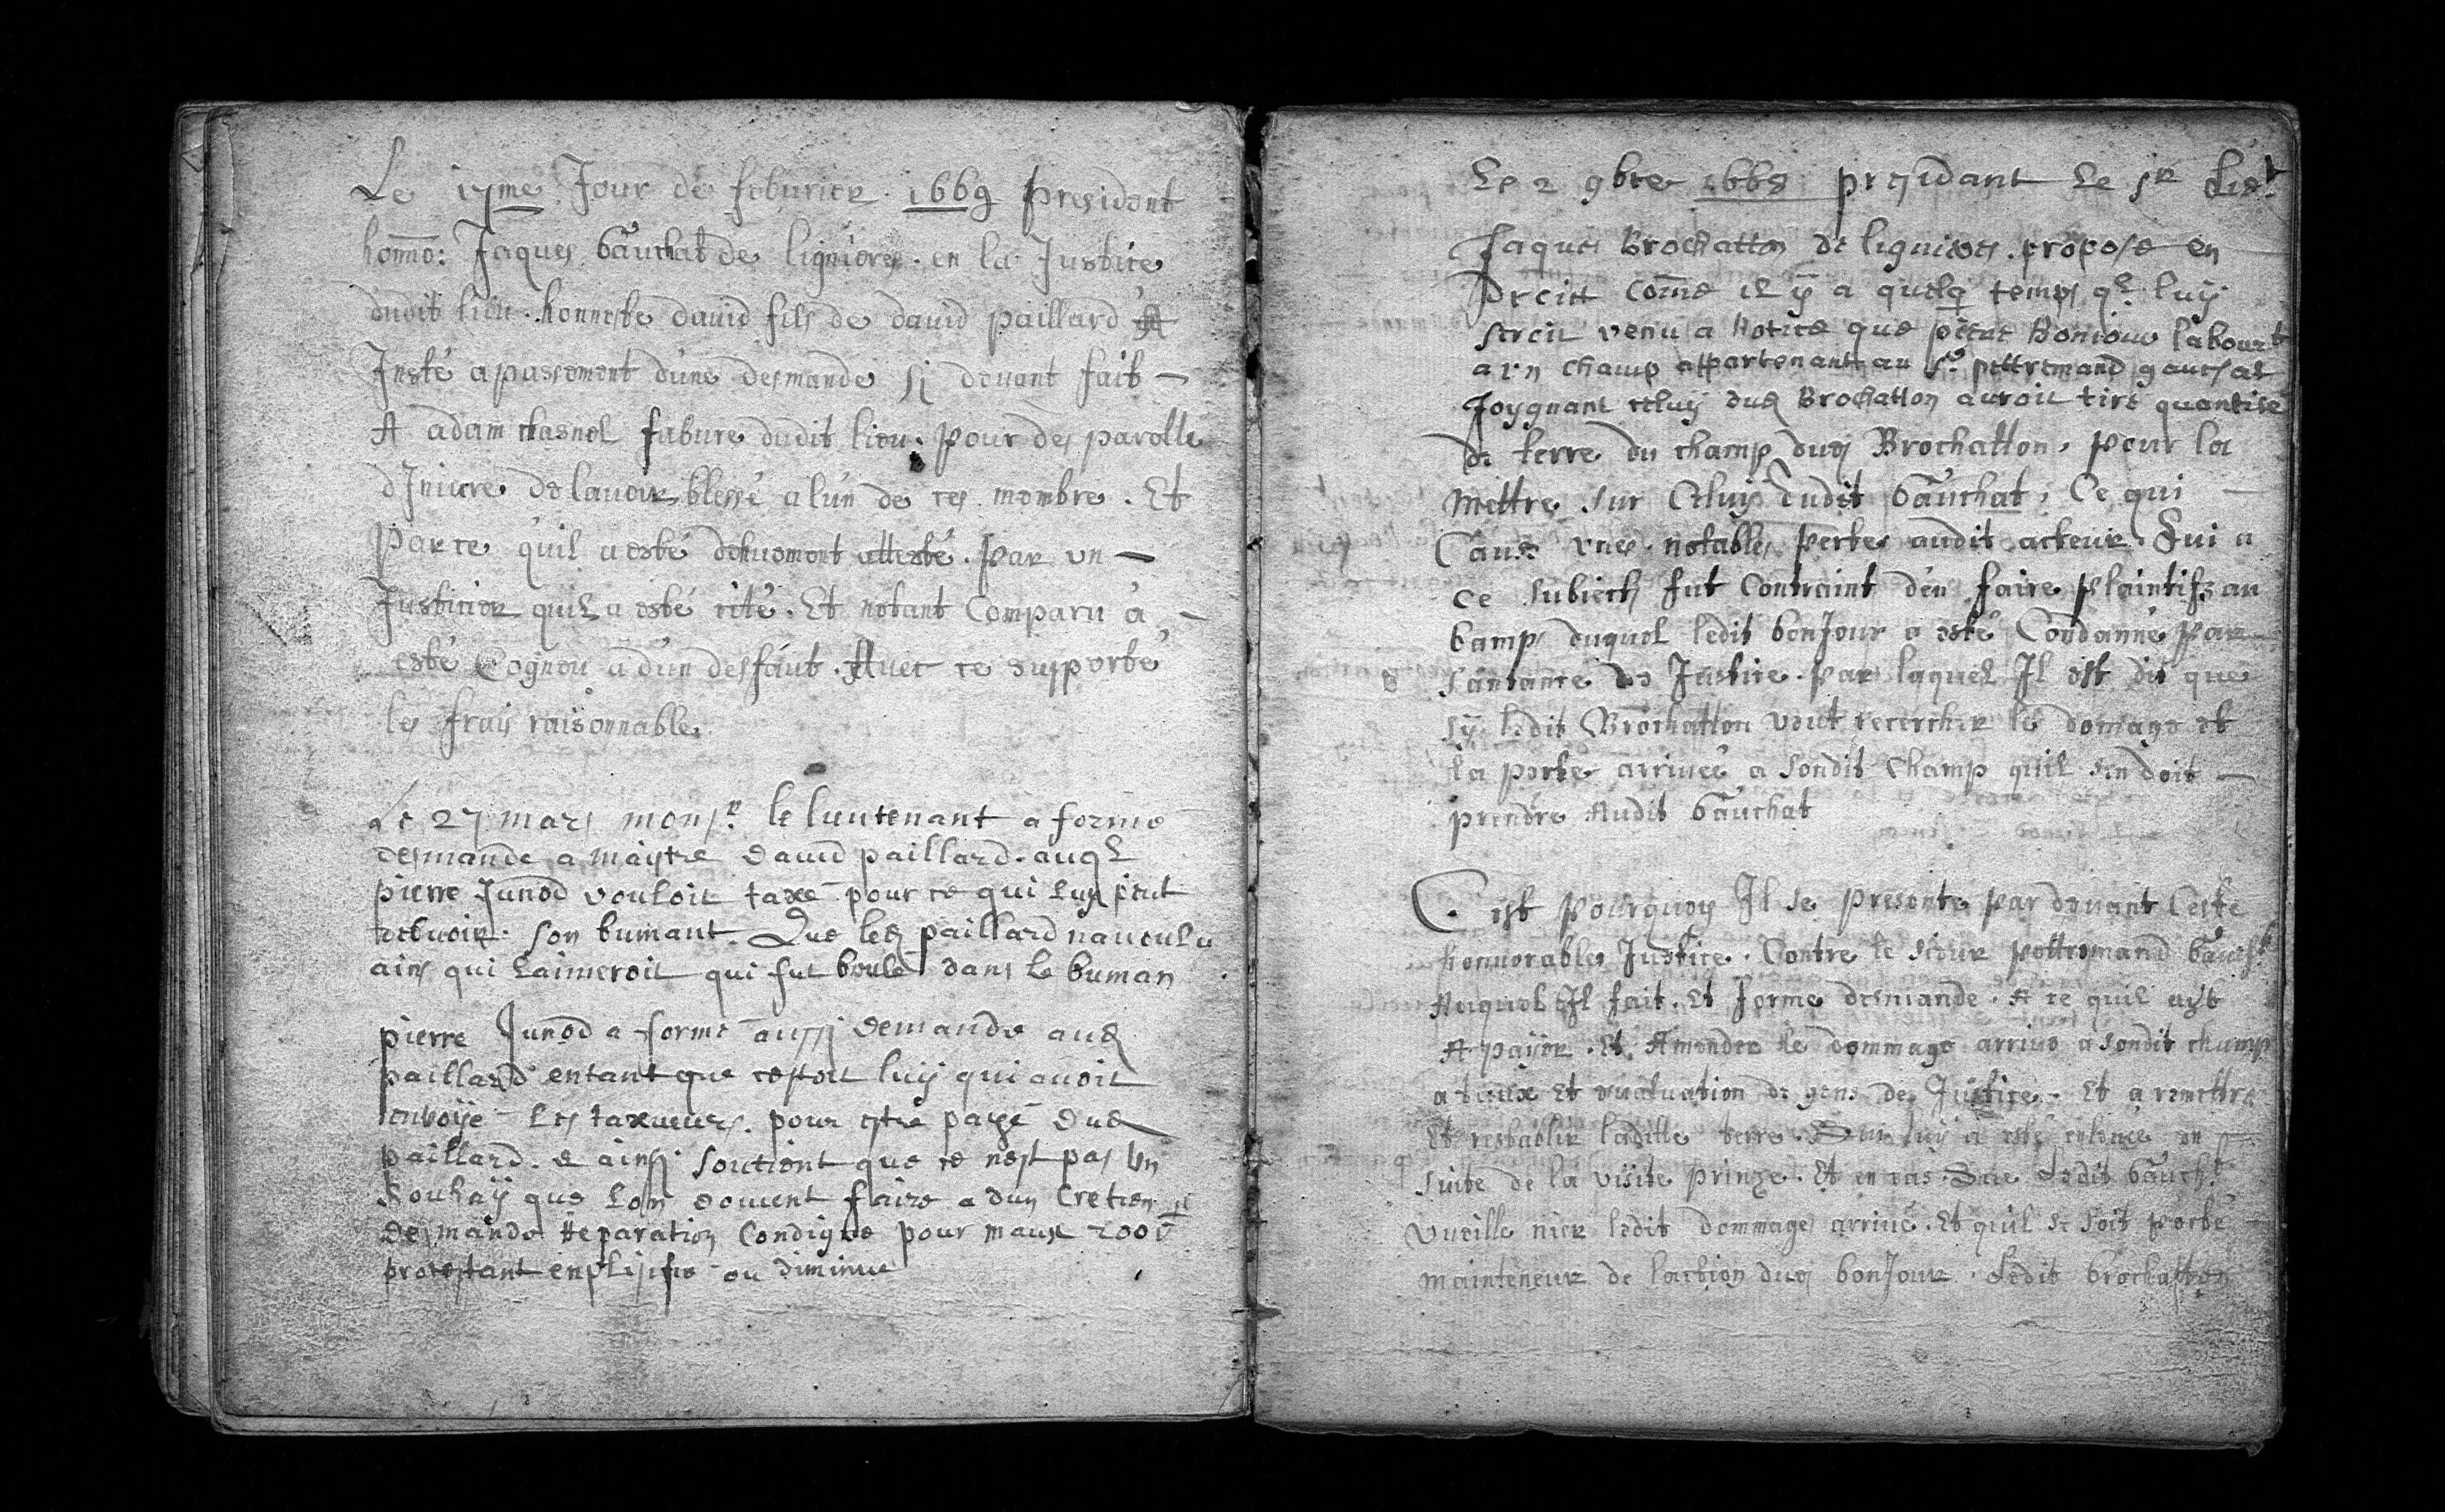 Le 17me Jour de feburier. 1669 president
honno: Jaques bauchat de lignieres. en la Justice
dudit lieu. honneste dauid fils de dauid paillard A
Insté a passement dune desmande Si deuant fait —
A adam fabure dudit lieu. pour des parolle
dIniure. de lauoir blessé a lún de ces mombre. Et
Parce quil a esté dehuement attesté. par un —
Justicier quil a esté cité. Et notant Comparu a —
esté Cognou a dún desfaut. Auec ce supporté
les frais raisonnable.
Le 27 mars monsr. le lieutenant a forme
desmande a maytre dauid paillard. auql
pierre Junod vouloit taxé pour ce qui luy peut
debuoir. son bumant. Que led paillard na voulu
ains qui laimeroit qui fut boulé dans le buman
pierre Junod a formé aussi demande aud
paillard entant que cestoit luy qui auoit
enuoÿé les taxueurs. pour estre payé dud
paillard. & ainsi soutient que ce nest pas un
Souhaÿ que lon doiuent faire a dun Cretien il
desmande Reparation Condigne pour maux 200
protestant en plis ou diminue
Le 2 9bre 1668 presidant Le Sr Liet
Jaques Brochatton de lignieres. propose en
Droict come il ÿ a quelq temps ql luÿ
seroit venu a notice que pierre Bonjour labourt
a vn champ appartenant au Sr pettremand gauchat
Joygnant celuy dud Brochatton auroit tiré quantité
de terre du champ dud Brochatton, pour la
mettre sur Celuy dudit bauchat, Ce qui —
Cause vnes notables pertes audit acteur. Qui a
ce Subiects fut Contraint den faire plaintifs au
bamp duquel ledit bonJour a esté Condanné par
santance de Justice. par laquel Il est dit que
sÿ ledit Brochatton veut recercher le domage et
la perte arriueé a sondit Champ quil sen doit —
prendre Audit bauchat
C. est pourquoy Il se presente par deuant Ceste
honnorables Justice. Contre le sieur pettremand bauch.t
Auquel Il fait. Et forme desmande. A ce quil ayt
A païer. Et Amender le dommage arriué a sondit champ
a taux et euatuation de gens de Justice. Et a remettre
Et restablir laditte terre. luy a esté en
suite de la visite prinze. Et en cas. Que Ledit bauch.t
vueille nier ledit dommages arriué. Et quil se soit porté —
mainteneur de laction dud bonJour. Ledit brochatton